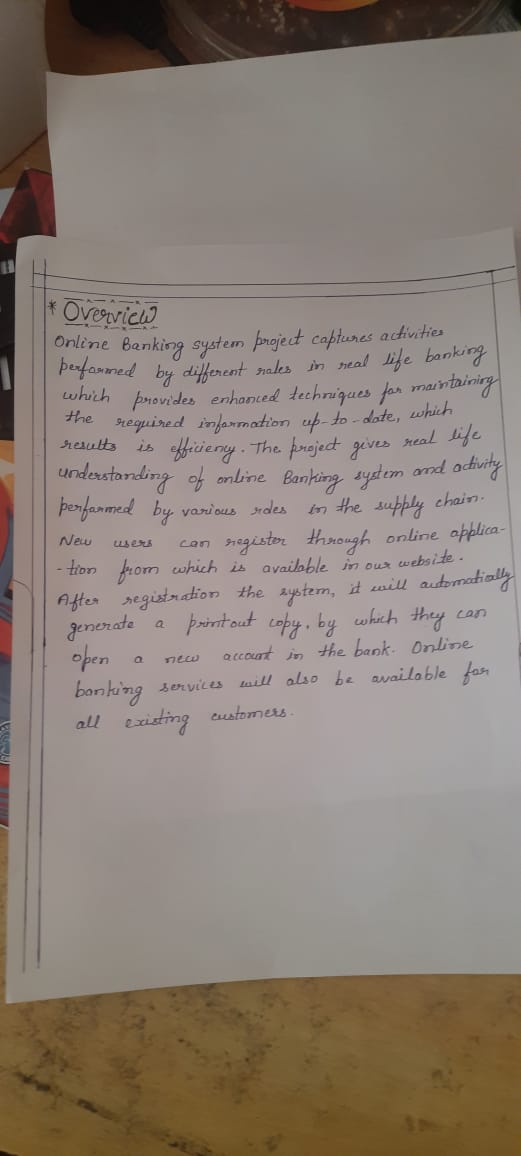 * Overview
Online Banking system project captures activities
performed by different roles in real life banking
which provides enhanced techniques for maintaining
the required information up-to-date, which
results is efficieny. The project gives real life
understanding of online Banking system and activity
performed by various roles in the supply chain.
New users can register through online applica-
-tion from which is available in our website.
After registration the system, it will automatically
generate a printout copy, by which they can
open a new account in the bank. Online
banking services will also be available for
all existing customers.